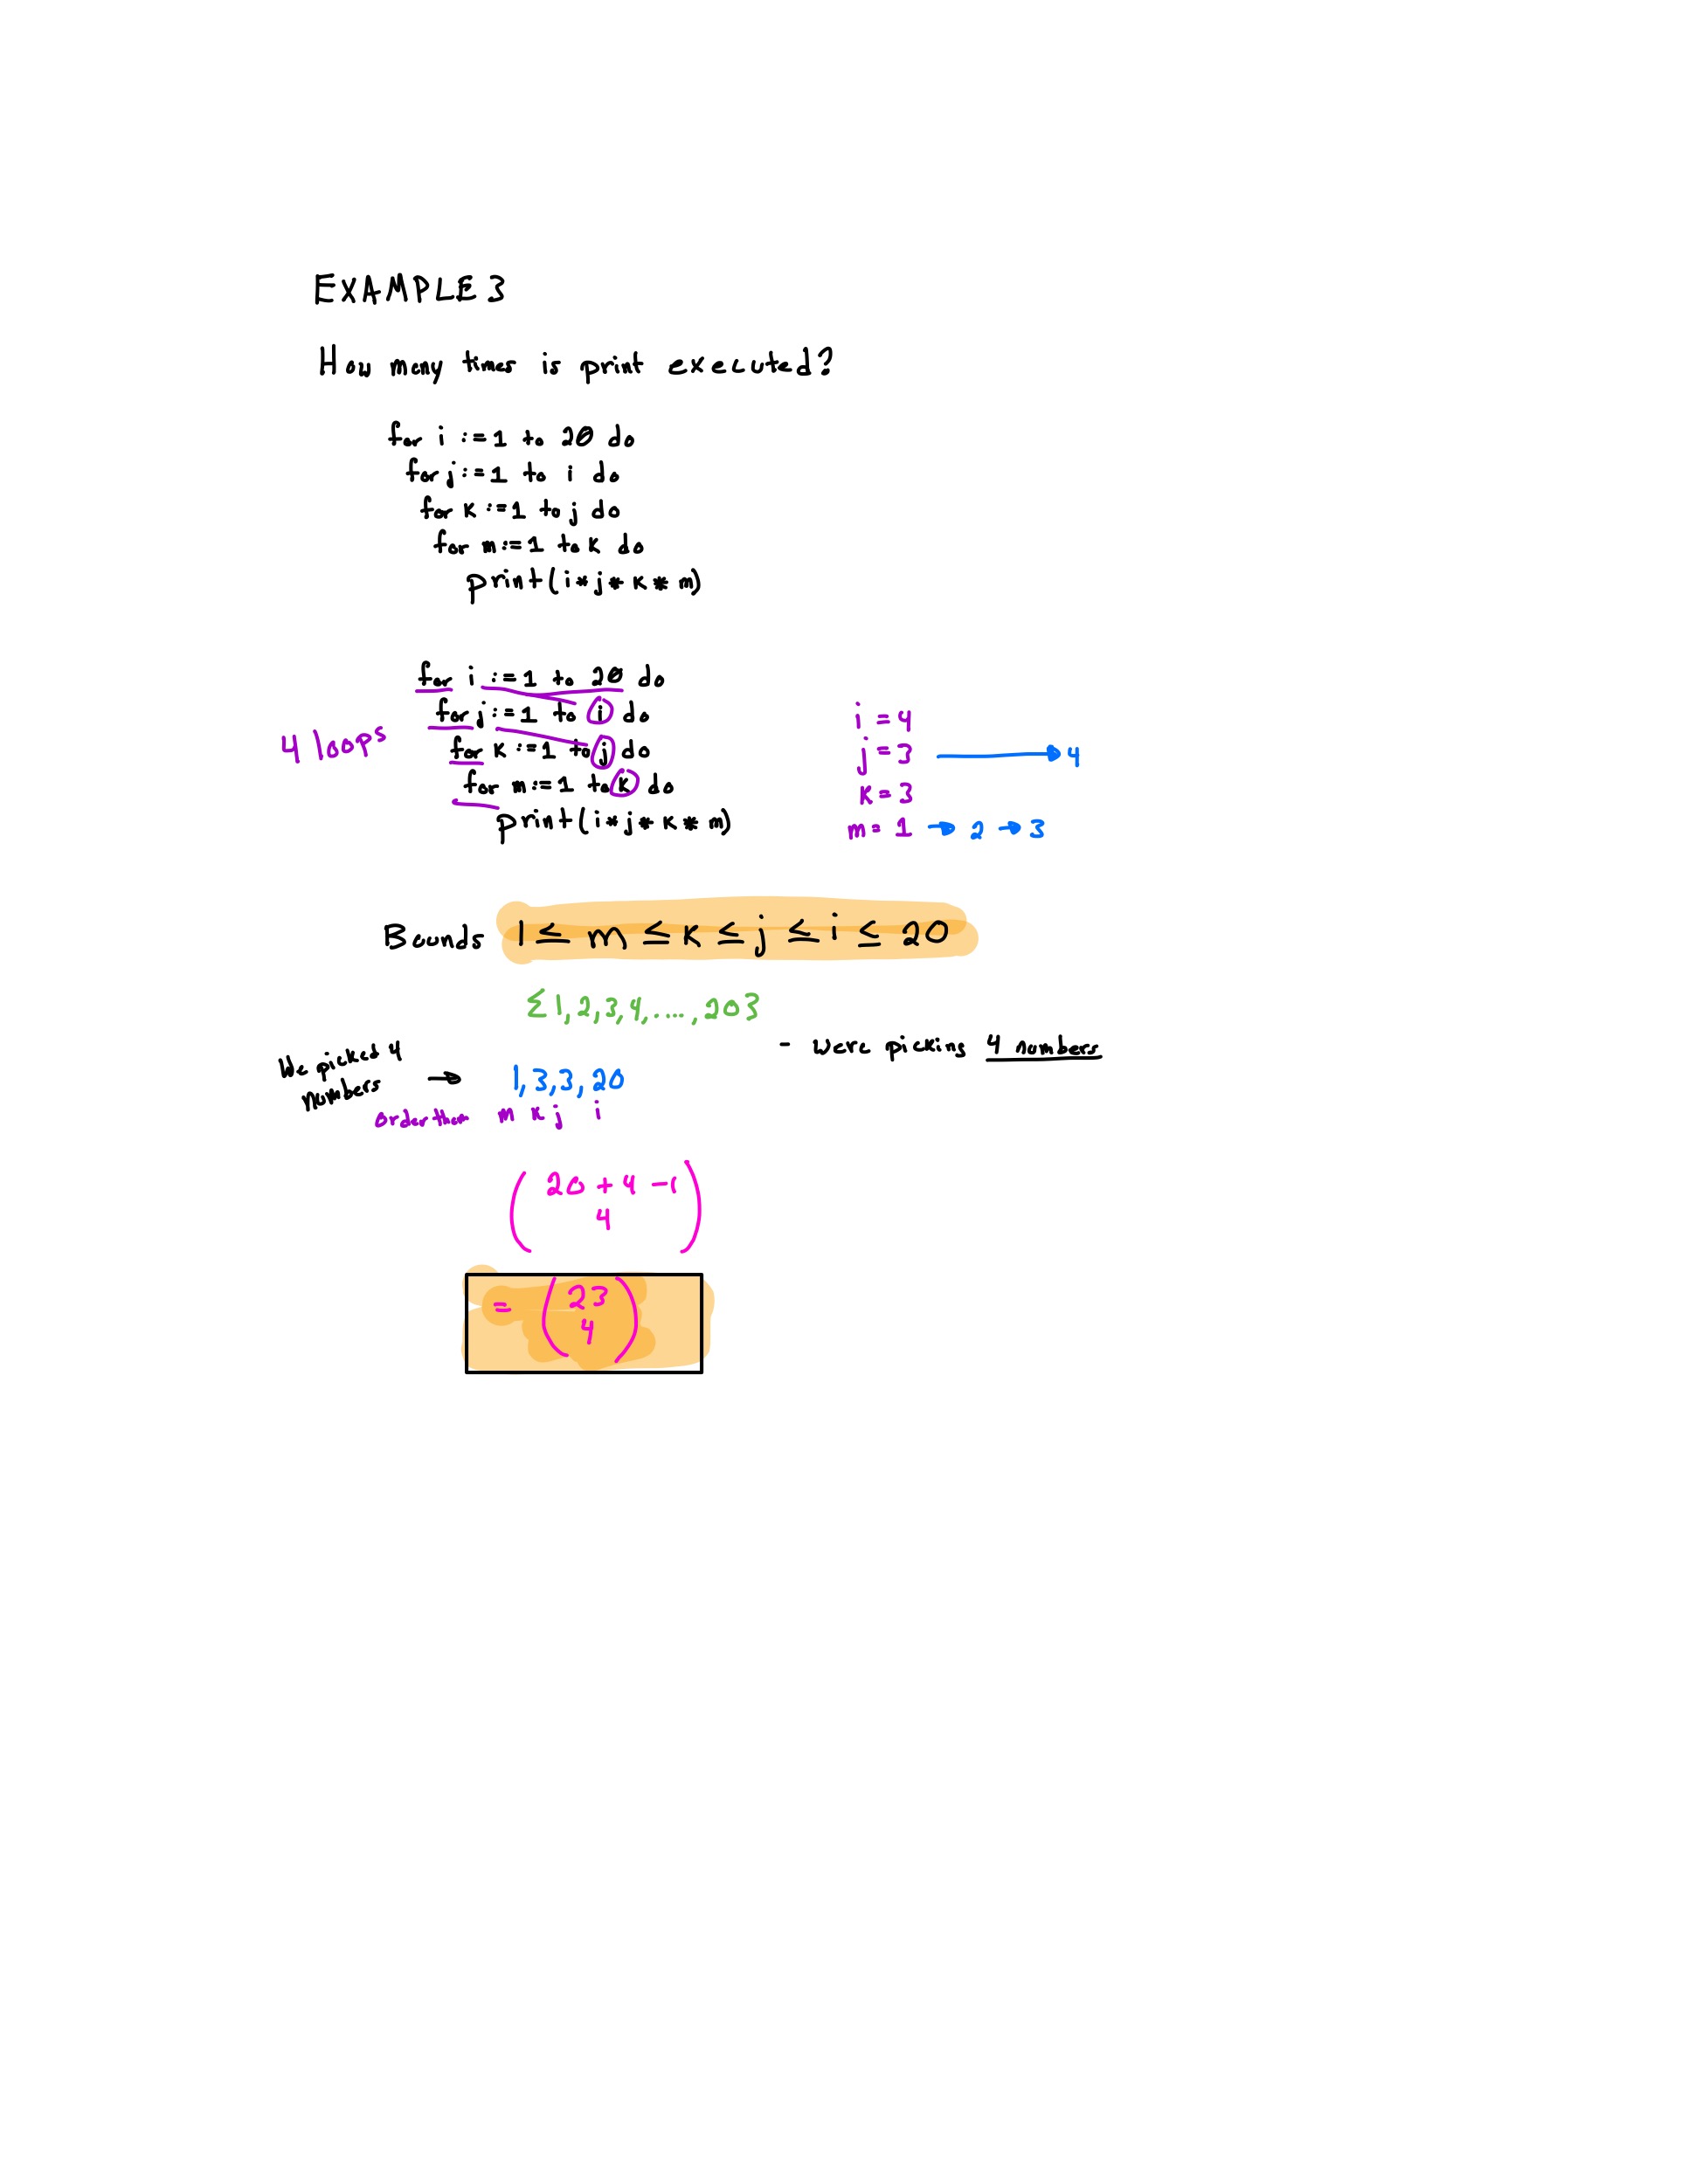 EXAMPLE 3
How many times is print executed?
for i := 1 to 20 do
for j := 1 to i do
for k := 1 to j do
for m := 1 to k do
print(i*j*k*m)
for i := 1 to 20 do
for j := 1 to i do
for k := 1 to j do
for m := 1 to k do
print(i*j*k*m)
4 loops
i = 4
j = 3 → 4
k = 3
m = 1 → 2 → 3
Bounds 1 ≤ m ≤ k ≤ j ≤ i ≤ 20
{1,2,3,4,....,20}
- were picking 4 numbers
We picked 4
numbers → 1,3,3,20
order them m k j i
(20 + 4 - 1
4)
= (23
4)